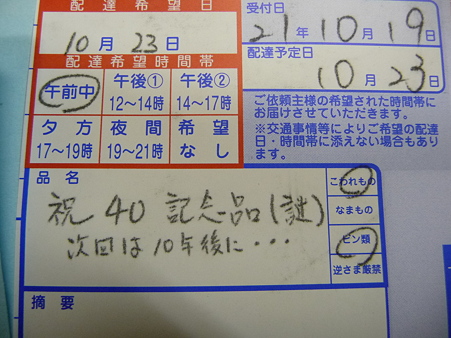 配達希望日
10月23日
配達希望時間帯
午前中 午後① 12〜14時 午後② 14〜17時
夕方 17〜19時 夜間 19〜21時 希望なし
受付日
21年10月19日
配達予定日
10月23日
ご依頼主様の希望された時間帯に
お届けさせていただきます。
※交通事情等によりご希望の配達
日・時間帯に添えない場合もあり
ます。
品名
祝40記念品(謎)
次回は10年後に・・・
こわれもの
なまもの
ビン類
逆さま厳禁
摘要